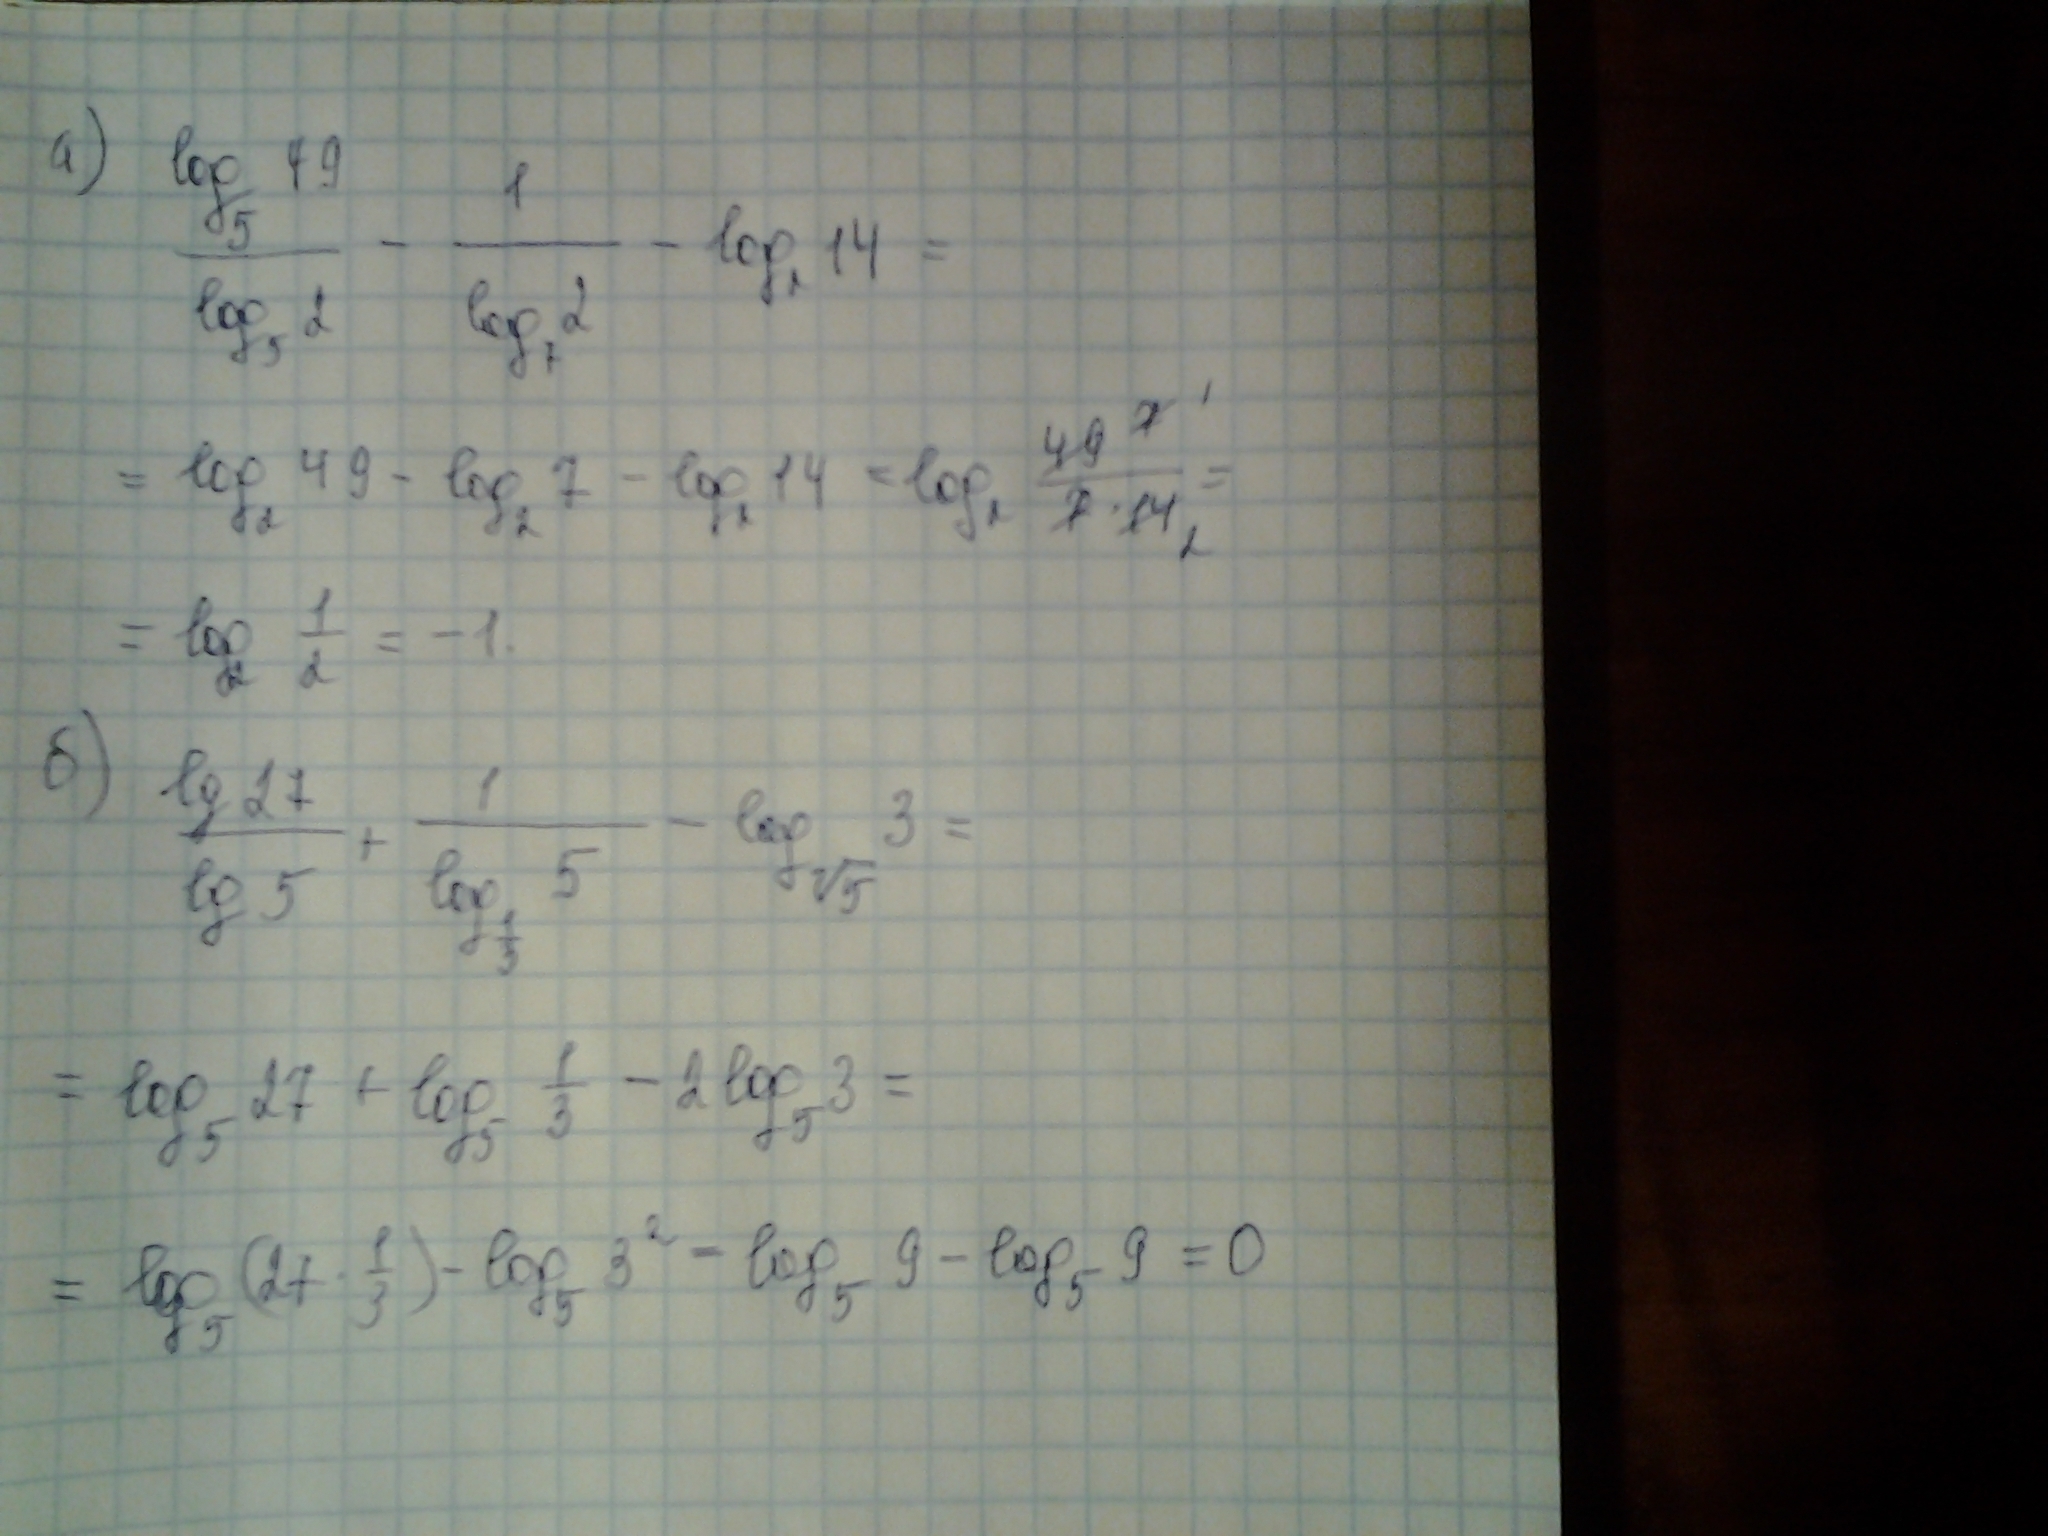 а) log₅ 49 / log₅ 2 - 1 / log₇ 2 - log₂ 14 =
= log₂ 49 - log₂ 7 - log₂ 14 = log₂ 49 7 1 / 7 · 14 2 =
= log₂ 1/2 = -1.
б) lg 27 / lg 5 + 1 / log_{1/3} 5 - log_{√5} 3 =
= log₅ 27 + log₅ 1/3 - 2 log₅ 3 =
= log₅ (27 · 1/3) - log₅ 3² = log₅ 9 - log₅ 9 = 0